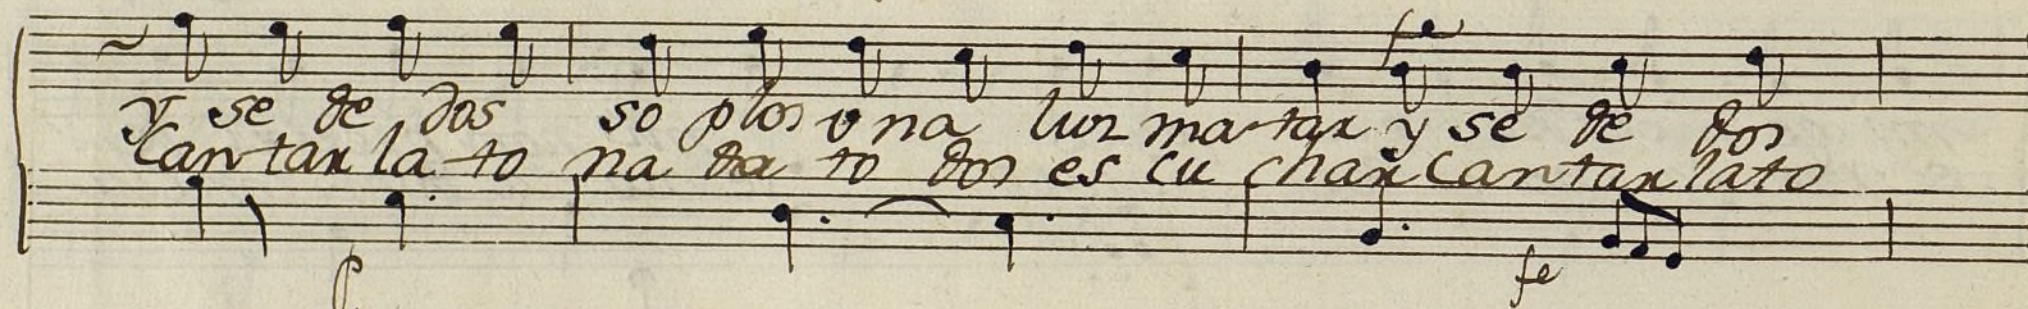 fe
y se de dos so plos v na luz ma-tar y se de dos
Cantar la to na da to dos es cu char Cantar la to
p
fe